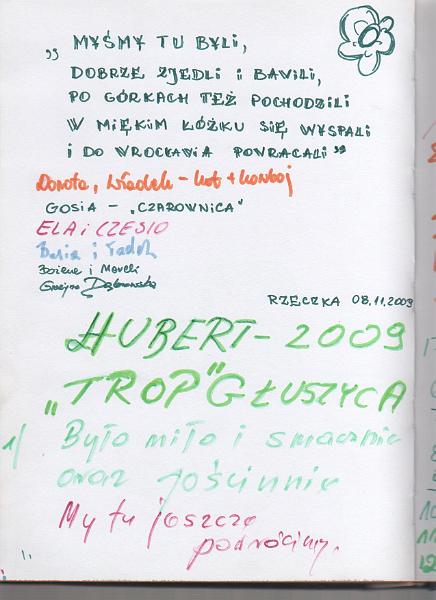 „MYŚMY TU BYLI,
DOBRZE ZJEDLI I BAWILI,
PO GÓRKACH TEŻ POCHODZILI
W MIĘKIM ŁÓŻKU SIĘ WYSPALI
I DO WROCŁAWIA POWRACALI”
Dorota, Władek - kot + kowboj
GOSIA - „CZAROWNICA"
ELA i CZESIO
Basia i Tadek
Bożena i Marek
Grażyna Dąbrowska
RZECZKA 08.11.2009
HUBERT - 2009
„TROP" GŁUSZYCA
1/ Było miło i smacznie
oraz gościnnie
My tu jeszcze
podrócimy.